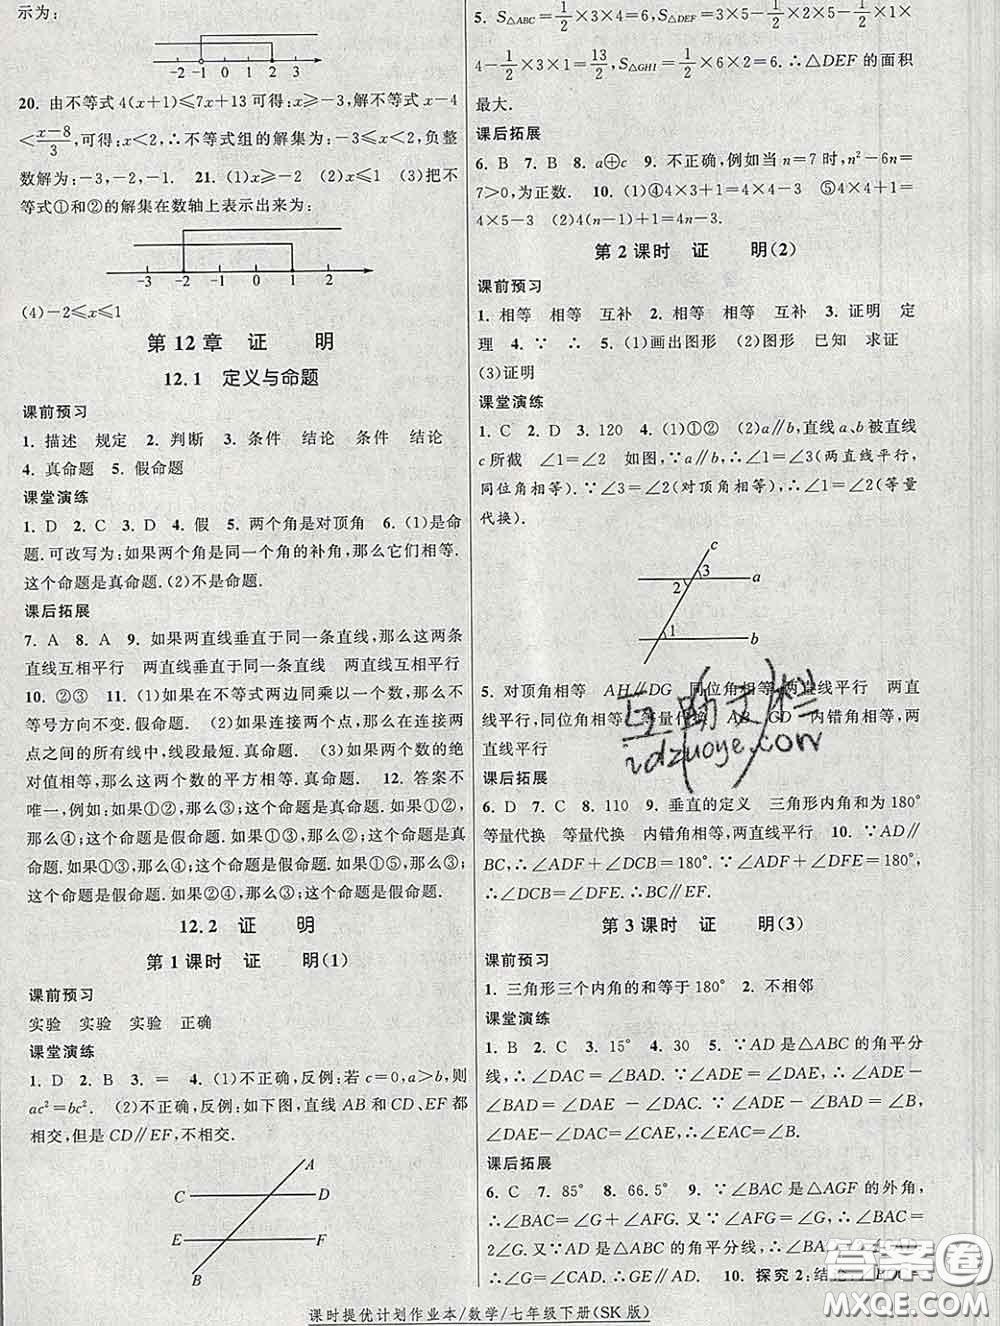 示为:
-2 -1 0 1 2 3
20. 由不等式4(x+1)≤7x+13可得:x≥-3,解不等式x-4
<(x-8)/3,可得:x<2,∴不等式组的解集为:-3≤x<2,负整
数解为:-3,-2,-1. 21. (1)x≥-2 (2)x≤1 (3)把不
等式①和②的解集在数轴上表示出来为:
-3 -2 -1 0 1 2
(4)-2≤x≤1
第12章 证 明
12.1 定义与命题
课前预习
1. 描述 规定 2. 判断 3. 条件 结论 条件 结论
4. 真命题 5. 假命题
课堂演练
1. D 2. C 3. D 4. 假 5. 两个角是对顶角 6. (1)是命
题.可改写为:如果两个角是同一个角的补角,那么它们相等.
这个命题是真命题.(2)不是命题.
课后拓展
7. A 8. A 9. 如果两直线垂直于同一条直线,那么这两条
直线互相平行 两直线垂直于同一条直线 两直线互相平行
10. ②③ 11. (1)如果在不等式两边同乘以一个数,那么不
等号方向不变.假命题. (2)如果连接两个点,那么连接两
点之间的所有线中,线段最短.真命题. (3)如果两个数的绝
对值相等,那么这两个数的平方相等.真命题. 12. 答案不
唯一,例如:如果①②,那么③;这个命题是真命题.如果①②,
那么④;这个命题是假命题.如果①③,那么④;这个命题是真
命题.如果①③,那么②;这个命题是真命题.如果①⑤,那么③;
这个命题是假命题.如果②④,那么③;这个命题是假命题.
12.2 证 明
第1课时 证 明(1)
课前预习
实验 实验 实验 正确
课堂演练
1. D 2. B 3. = 4. (1)不正确,反例:若c=0,a>b,则
ac²=bc². (2)不正确,反例:如下图,直线AB和CD、EF都
相交,但是CD∥EF,不相交.
A
C D
E F
B
5. S△ABC=1/2×3×4=6,S△DEF=3×5-1/2×5×2-1/2×1×
4-1/2×3×1=13/2,S△GHI=1/2×6×2=6.∴△DEF的面积
最大.
课后拓展
6. B 7. B 8. a⊕c 9. 不正确,例如当n=7时,n²-6n=
7>0,为正数. 10. (1)④4×3+1=4×4-3 ⑤4×4+1=
4×5-3 (2)4(n-1)+1=4n-3.
第2课时 证 明(2)
课前预习
1. 相等 相等 互补 2. 相等 相等 互补 3. 证明 定
理 4. ∵ ∴ 5. (1)画出图形 (2)图形 已知 求证
(3)证明
课堂演练
1. C 2. D 3. 120 4. (1)①② (2)a∥b,直线a、b被直线
c所截 ∠1=∠2 如图,∵a∥b,∴∠1=∠3(两直线平行,
同位角相等).∵∠3=∠2(对顶角相等),∴∠1=∠2(等量
代换).
c
3
2 a
1 b
5. 对顶角相等 AH∥DG 同位角相等,两直线平行 两直
线平行,同位角相等 等量代换 AB 内错角相等,两
直线平行
互助文档
idzuoye.com
课后拓展
6. D 7. C 8. 110 9. 垂直的定义 三角形内角和为180°
等量代换 等量代换 内错角相等,两直线平行 10. ∵AD∥
BC,∴∠ADF+∠DCB=180°.∵∠ADF+∠DFE=180°,
∴∠DCB=∠DFE.∴BC∥EF.
第3课时 证 明(3)
课前预习
1. 三角形三个内角的和等于180° 2. 不相邻
课堂演练
1. B 2. C 3. 15° 4. 30 5. ∵AD是△ABC的角平分
线,∴∠DAC=∠BAD.∵∠DAE=∠DEA,∴∠DAE
-∠BAD=∠DEA-∠BAD.∵∠DEA-∠BAD=∠B,
∠DAE-∠DAC=∠CAE,∴∠EAC=∠B.
课后拓展
6. C 7. 85° 8. 66.5° 9. ∵∠BAC是△AGF的外角,
∴∠BAC=∠G+∠AFG.又∵∠AFG=∠G,∴∠BAC=
2∠G.又∵AD是△ABC的角平分线,∴∠BAC=
10. 探究2:结论:∠BOC
答案圈
MXQE.COM
课时提优计划作业本/数学/七年级下册(SK版)